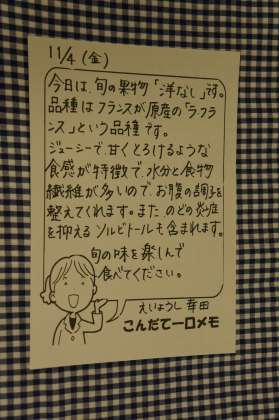 11/4 (金)
今日は、旬の果物「洋なし」です。
品種はフランスが原産の「ラ・フラ
ンス」という品種です。
ジューシーで甘くとろけるような
食感が特徴で、水分と食物
繊維が多いので、お腹の調子を
整えてくれます。また、のどの炎症
を抑えるソルビトールも含まれます。
旬の味を楽しんで
食べてください。
えいようし 幸田
こんだて一口メモ